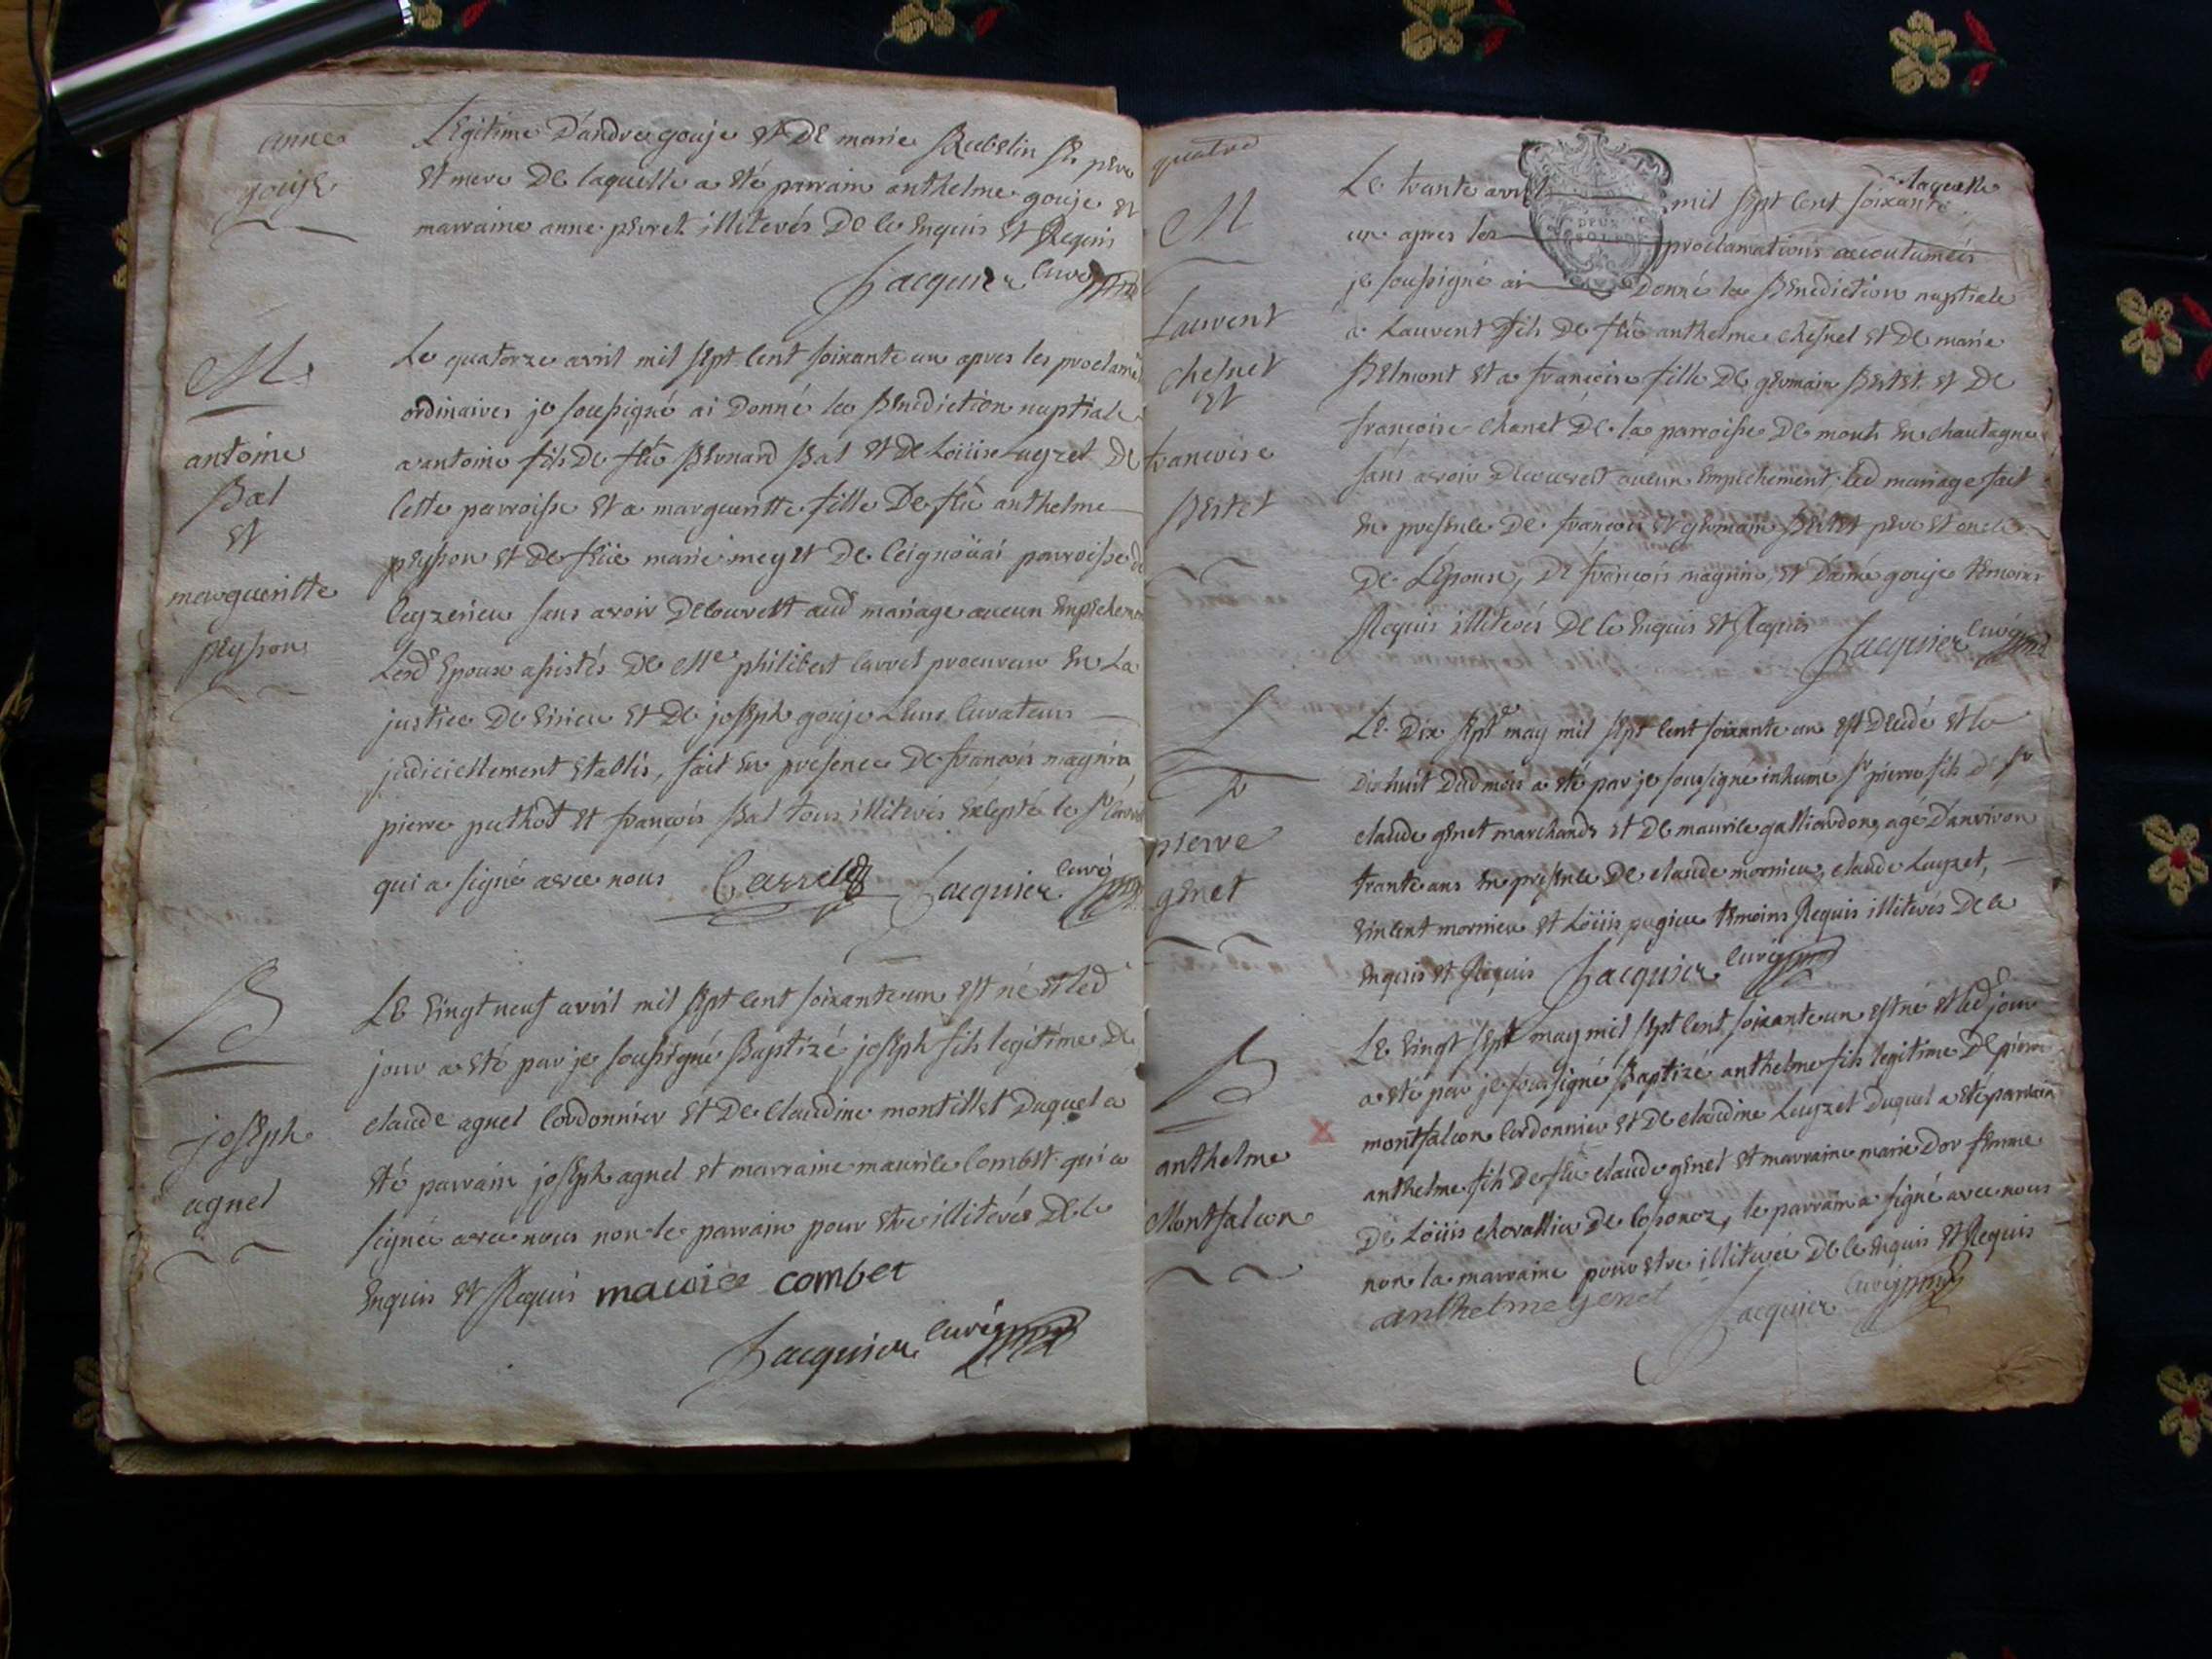 anne
gouje
Legitime D'andre gouje et De marie Rubelin Ses pere
et mere De laquelle a eté parrain anthelme gouje et
marraine anne perret illiterés De ce enquis et Requis
Jacquier curé
M
antoine
Bal
et
margueritte
peysson
Le quatorze avril mil sept cent soixante un apres les proclama
ordinaires je soussigné ai Donné la Benediction nuptiale
a antoine fils De feu Bernard Bal et De Loüise Luyzet De
cette parroisse et a margueritte fille De feu anthelme
peysson et De feüe marie meyet De ceignoüai parroisse de
ceyzerieu sans avoir Decouvert aud mariage aucun empechem
Lesd Epoux assistés De Me philibert carret procureur en La
justice De Virieu et De joseph gouje Leur curateurs
judiciellement etablis, fait en presence De françois magnin,
pierre puthod et françois Bal tous illiterés excepté le Sr carre
qui a signé avec nous Carret Jacquier curé
B
joseph
agnel
Le vingt neuf avril mil sept cent soixante un est né et led
jour a eté par je soussigné Baptizé joseph fils legitime De
claude agnel Cordonnier et De Claudine montillet Duquel a
eté parrain joseph agnel et marraine maurice combet qui a
signée avec nous non le parrain pour etre illiterés De ce
enquis et Requis maurice combet
Jacquier curé
quatre
M
Laurent
chesnel
et
francoise
Bertet
Le trante avril mil sept cent soixante
un apres les proclamations accoutumées
je soussigné ai Donné la Benediction nuptiale
a Laurent fils De feu anthelme chesnel et De marie
Belmont et a francoise fille De germain Bertet et De
françoise chanet De la parroisse De mouts en chautagne
sans avoir Decouvert aucun empechement, led mariage fait
en presence De françois et germain Bertet pere et oncle
De L'epouse, De françois magnin, et Daimé gouje temoins
Requis illiterés De ce enquis et Requis Jacquier curé
S
pierre
genet
Le Dix sept may mil sept cent soixante un est Decedé et le
Dixhuit Dud mois a eté par je soussigné inhumé Sr pierre fils De Sr
claude genet marchands et De maurice galliardon, agé D'anviron
trante ans en presence De claude mornieu, claude Luyzet,
vincent mornieu et Loüis pugieu temoins Requis illiterés De ce
enquis et Requis Jacquier curé
B
anthelme
Montfalcon
Le vingt sept may mil sept cent soixante un est né et led jour
a eté par je soussigné Baptizé anthelme fils legitime De pierre
montfalcon Cordonnier et De claudine Luyzet Duquel a eté parrain
anthelme fils De feu claude genet et marraine marie Dor femme
De Loüis chevallier De le parrain a signé avec nous
non la marraine pour etre illiterée De ce enquis et Requis
anthelme genet Jacquier curé